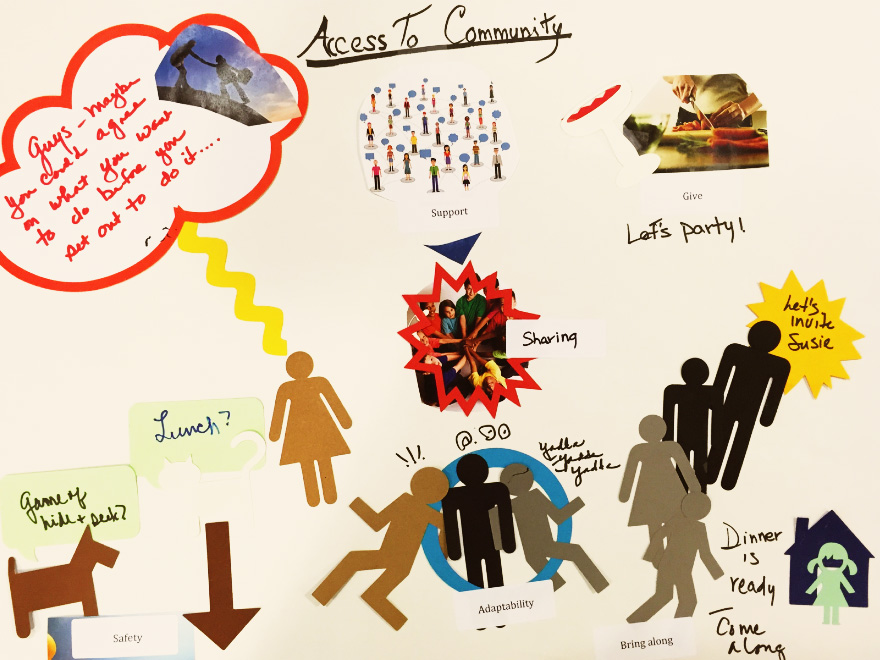 Access To Community
Guys - maybe
you could agree
on what you want
to do before you
set out to do it....
Support
Give
Let's party!
Sharing
Let's
invite
Susie
Lunch?
Game of
hide + seek?
!!!
@.
yadda
yadda
yadda
Dinner
is
ready
Come
along
Safety
Adaptability
Bring along